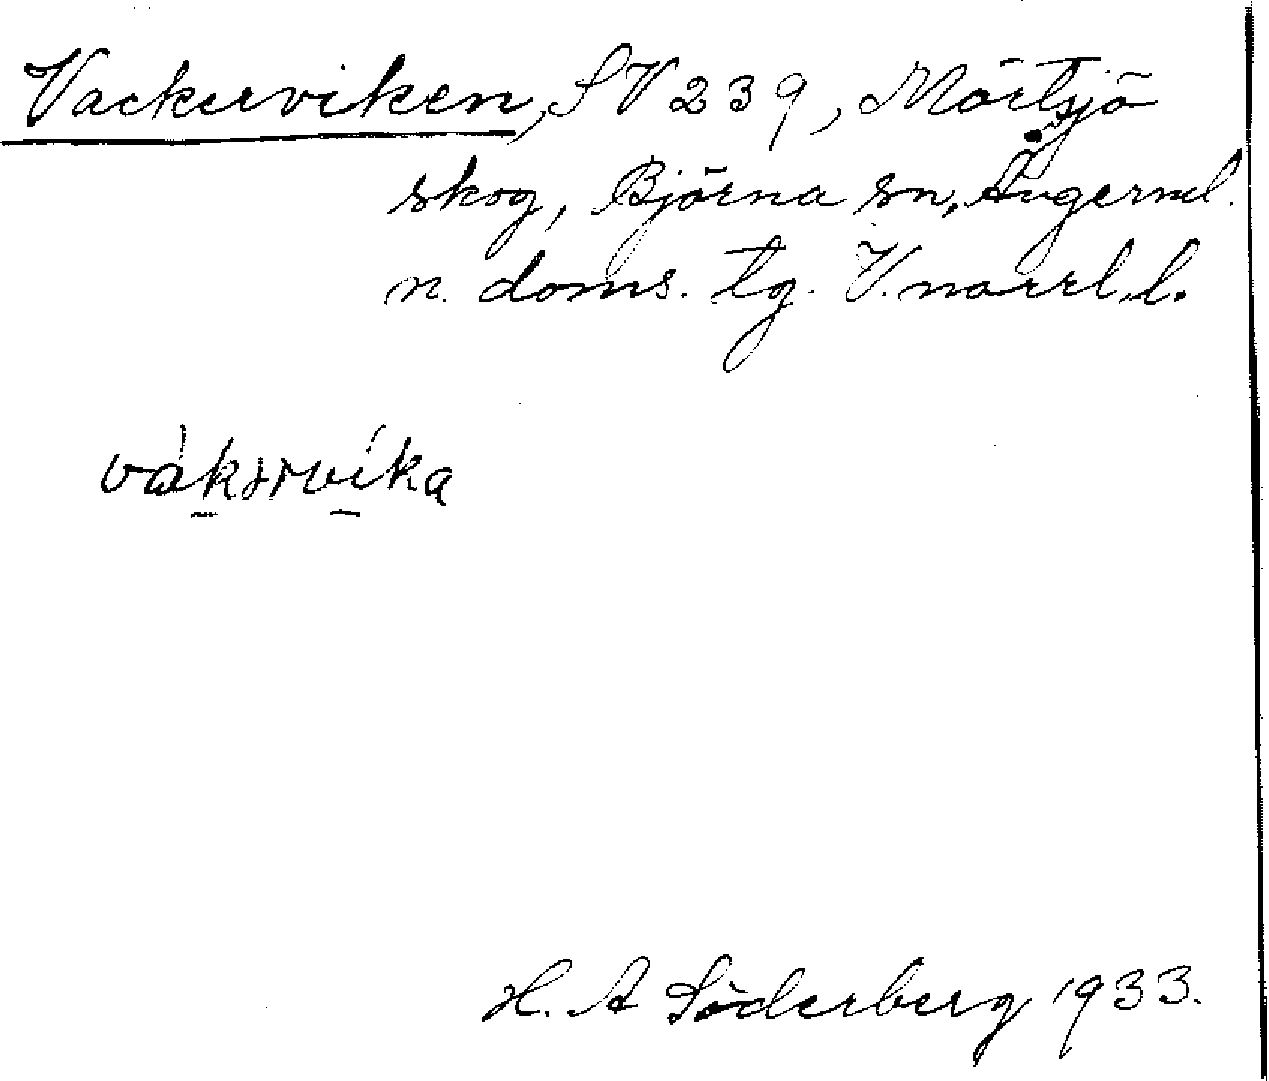 Vackerviken, SV 239, Mörtsjö
skog, Björna sn, Ångerml.
n. doms. tg. V.norrl. l.
H. A Söderberg 1933.